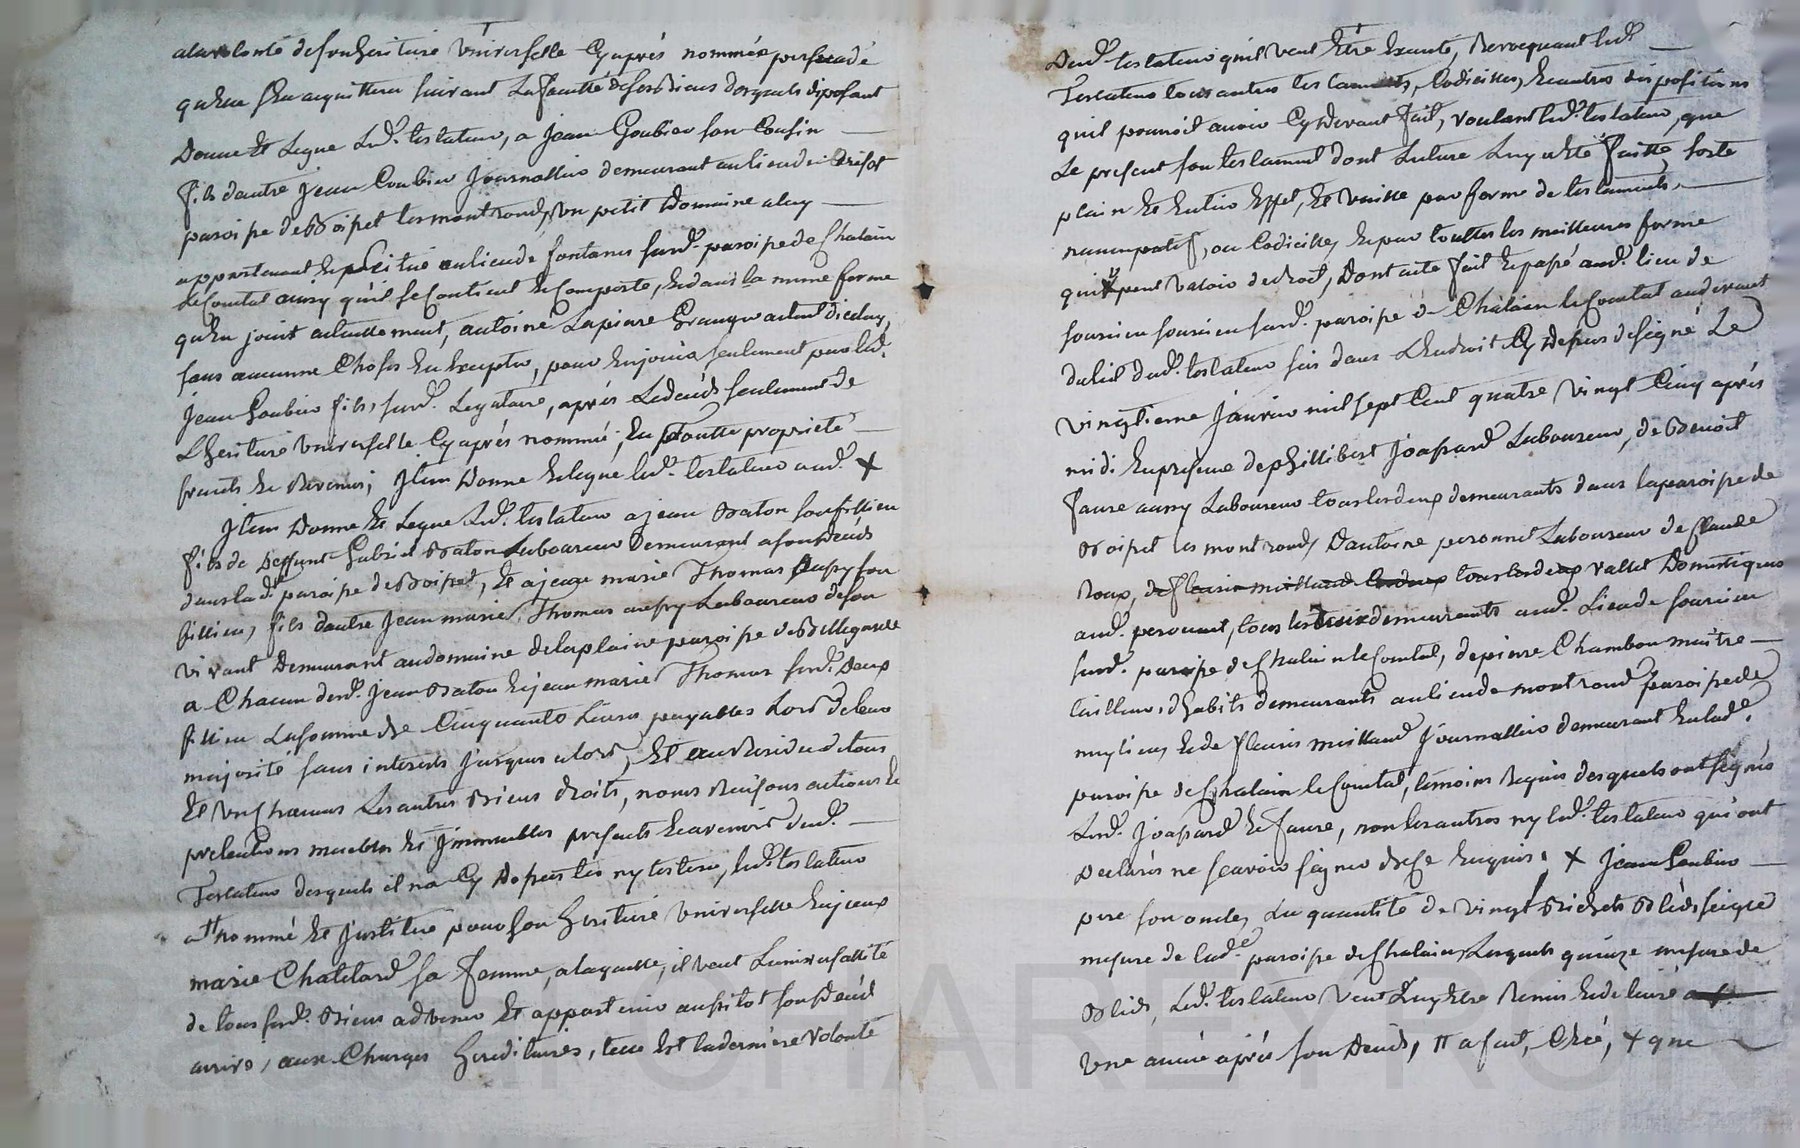 alavolonté desonheritiere Universelle Cyaprés nommée persuadé
quelle s'en acquittera suivant La faculté desesbiens desquels disposant
Donne Et Legue Led. testateur, a Jean Goubier son Cousin
fils d'autre Jean Goubier Journallier demeurant au lieu de
paroisse deBoisset lesmontrond, un petit Domaine aluy
appartenant Et scitué aulieude fontanes susd. paroisse de Chalain
LeComtal ainsy qu'il seContient Et Comporte, Et dans la meme forme
qu'En jouit actuellement, antoine Lapierre Granger
sans aucunne Choses En Excepter, pour En jouir seulement par led.
Jean Goubier fils, susd. Legataire, aprés Ledeceds seulement de
Lheritiere universelle Cyaprés nommée, En toutte proprieté
fruits Et Revenus; Item Donne Et legue led. testateur aud. +
Item Donne Et Legue Led. testateur a jean Baton son fillieu
fils de Deffunt Gabriel Baton Laboureur Demeurant a son deceds
dans lad. paroisse de Boisset, Et a jean marie Thomas Cuspy son
fillieu, fils d'autre Jean marie Thomas cuspy Laboureur de son
vivant Demeurant audomaine delaplaine paroisse de Bellegarde
a Chacun desd. Jean Baton Et jean marie Thomas susd. Deux
fillieu Lasomme de Cinquante Livres payables Lors de leur
majorité sans interests jusques alors, Et au Residu de tous
Et un Chacuns Les autres Biens droits, noms Raisons actions Et
pretentions meubles Et Immeubles presents Et avenir dud.
Testateur desquels il na Cy Dessus testé ny testera, led. testateur
a nommé Et Institué pour son heritiere universelle Et jeanne
marie Chatelard sa femme, a laquelle, il veut Luniversallité
de tous sesd. Biens advenir Et appartenir aussitot son deceds
arrivé, aux Charges hereditaires, telle Est laderniere volonté
Dud. testateur qu'il veut Etre Executé, Revoquant led.
Testateur tous autres testaments, Codicilles, Et autres dispositions
quil pourroit avoir Cy devant fait, voulant led. testateur, que
Le present son testament dont Lecture Luy a Eté faitte, sorte
plain Et Entier Effet, Et vaille par forme de testament
nuncupatif, ou Codicille, Et par touttes les meilleures forme
quil peut valoir de droit, Dont acte fait Et passé aud. lieu de
fournier sousd. paroisse de Chalain leComtal audevant
dulit dud. testateur sis dans L'Endroit Cy Dessus designé Le
vingtieme Janvier mil sept Cent quatre vingt Cinq aprés
midi En presence de phillibert Joassard Laboureur, de Benoit
Faure aussy Laboureur tous les deux demeurants dans la paroisse de
Boisset les montrond, D'antoine peronnet Laboureur de Claude
Roux, vallet Domestiques
aud. peronnet, tous les trois demeurants aud. Lieu de fournier
susd. paroisse de Chalain le Comtal, de pierre Chambon maitre
tailleur, d'habits demeurants aulieude montrond paroisse de
meylieu, Et de fleurie maillard Journallier demeurant En lad.
paroisse de Chalain le Comtal, temoins Requis desquels ont signés
Lesd. Joassard Et faure, non les autres ny led. testateur qui ont
Declarés ne scavoir signer de ce Enquis. + Jean Goubier
pere son oncle, La quantité de vingt Bichets Bled seigle
mesure de lad. paroisse de Chalain, Lesquels quinze mesure de
Bled, Led. testateur veut Luy Etre Remis Et delivré
une année aprés son deceds, Il a fait, Créé, + que